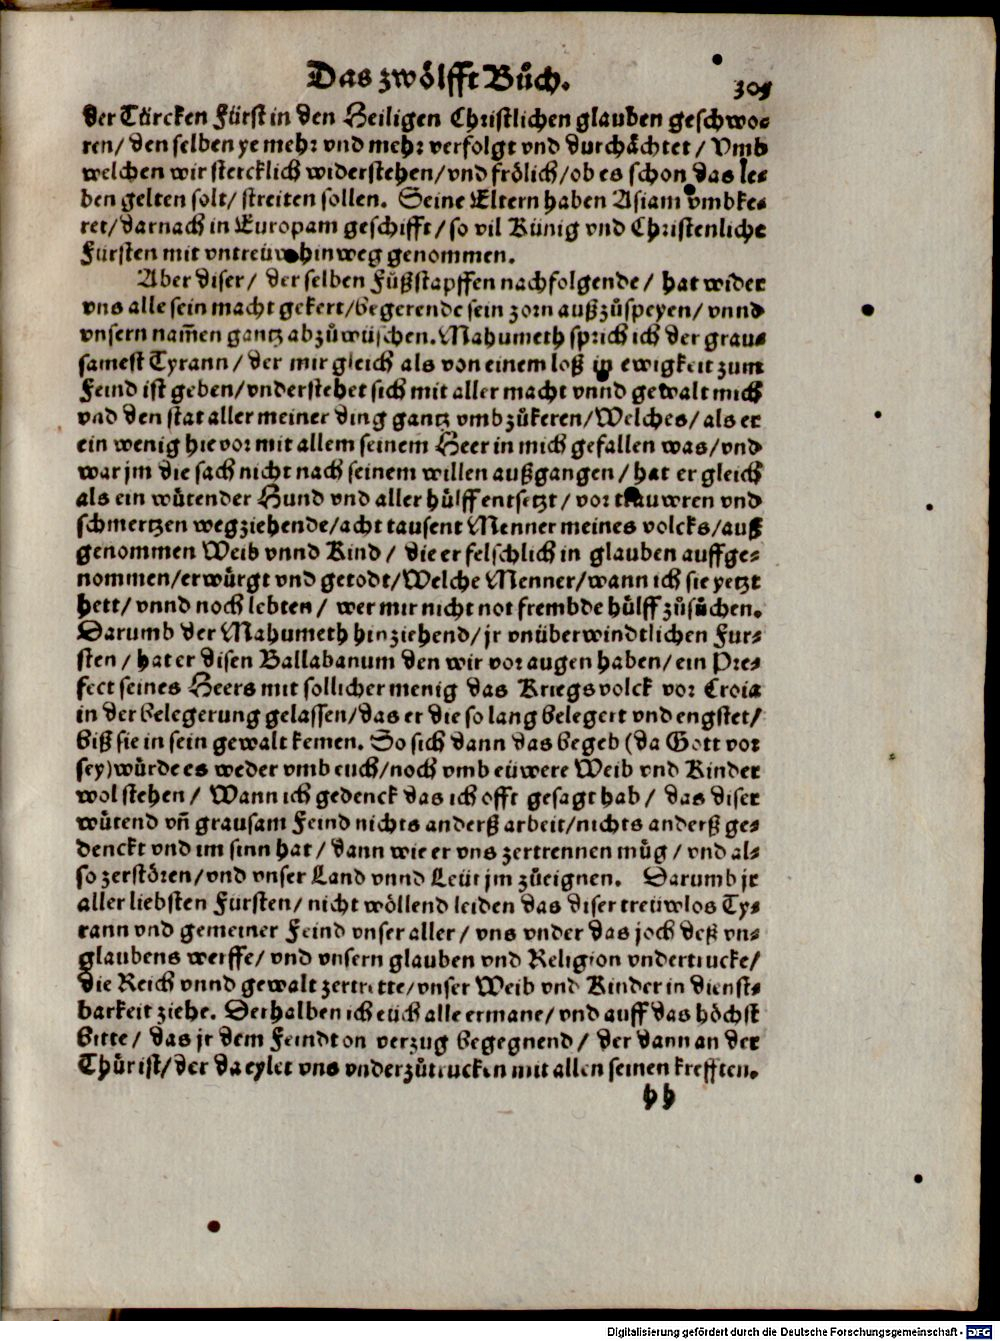 Das zwölfft Bůch. 305
der Türcken Fürst in den Heiligen Christlichen glauben geschwo-
ren/ den selben ye mehr vnd mehr verfolgt vnd durchächtet/ Vmb
welchen wir stercklich widerstehen/ vnd frölich/ ob es schon das le-
ben gelten solt/ streiten sollen. Seine Eltern haben Asiam vmbke-
ret/ darnach in Europam geschifft/ so vil Künig vnd Christenliche
Fürsten mit vntreüw hinweg genommen.
Aber diser/ der selben Füßstapffen nachfolgende/ hat wider
vns alle sein macht gekert/ begerende sein zorn außzůspeyen/ vnnd
vnsern nam̃en gantz abzůwüschen. Mahumeth sprich ich der grau-
samest Tyrann/ der mir gleich als von einem loß in ewigkeit zum
Feind ist geben/ vnderstehet sich mit aller macht vnnd gewalt mich
vnd den stat aller meiner ding gantz vmbzůkeren/ Welches/ als er
ein wenig hievor mit allem seinem Heer in mich gefallen was/ vnd
war jm die sach nicht nach seinem willen außgangen/ hat er gleich
als ein wütender Hund vnd aller hülff entsetzt/ vor trauwren vnd
schmertzen wegziehende/ acht tausent Menner meines volcks/ auß
genommen Weib vnnd Kind/ die er felschlich in glauben auffge-
nommen/ erwürgt vnd getodt/ Welche Menner/ wann ich sie yetzt
hett/ vnnd noch lebten/ wer mir nicht not frembde hülff zůsůchen.
Darumb der Mahumeth hinziehend/ jr vnüberwindtlichen Fur-
sten/ hat er disen Ballabanum den wir vor augen haben/ ein Pre-
fect seines Heers mit sollicher menig das Kriegsvolck vor Croia
in der belegerung gelassen/ das er die so lang belegert vnd engstet/
biß sie in sein gewalt kemen. So sich dann das begeb (da Gott vor
sey) würde es weder vmb euch/ noch vmb eüwere Weib vnd Kinder
wol stehen/ Wann ich gedenck das ich offt gesagt hab/ das diser
wütend vñ grausam Feind nichts anderß arbeit/ nichts anderß ge-
denckt vnd im sinn hat/ dann wie er vns zertrennen müg/ vnd al-
so zerstören/ vnd vnser Land vnnd Leüt jm zůeignen. Darumb jr
aller liebsten Fürsten/ nicht wöllend leiden das diser treüwlos Ty-
rann vnd gemeiner Feind vnser aller/ vns vnder das joch deß vn-
glaubens werffe/ vnd vnsern glauben vnd Religion vndertrucke/
die Reich vnnd gewalt zertrette/ vnser Weib vnd Kinder in dienst-
barkeit ziehe. Derhalben ich eüch alle ermane/ vnd auff das höchst
bitte/ das jr dem Feind ton verzug begegnend/ der dann an der
Thür ist/ der da eylet vns vnderzůtrucken mit allen seinen krefften.
hh
Digitalisierung gefördert durch die Deutsche Forschungsgemeinschaft - DFG